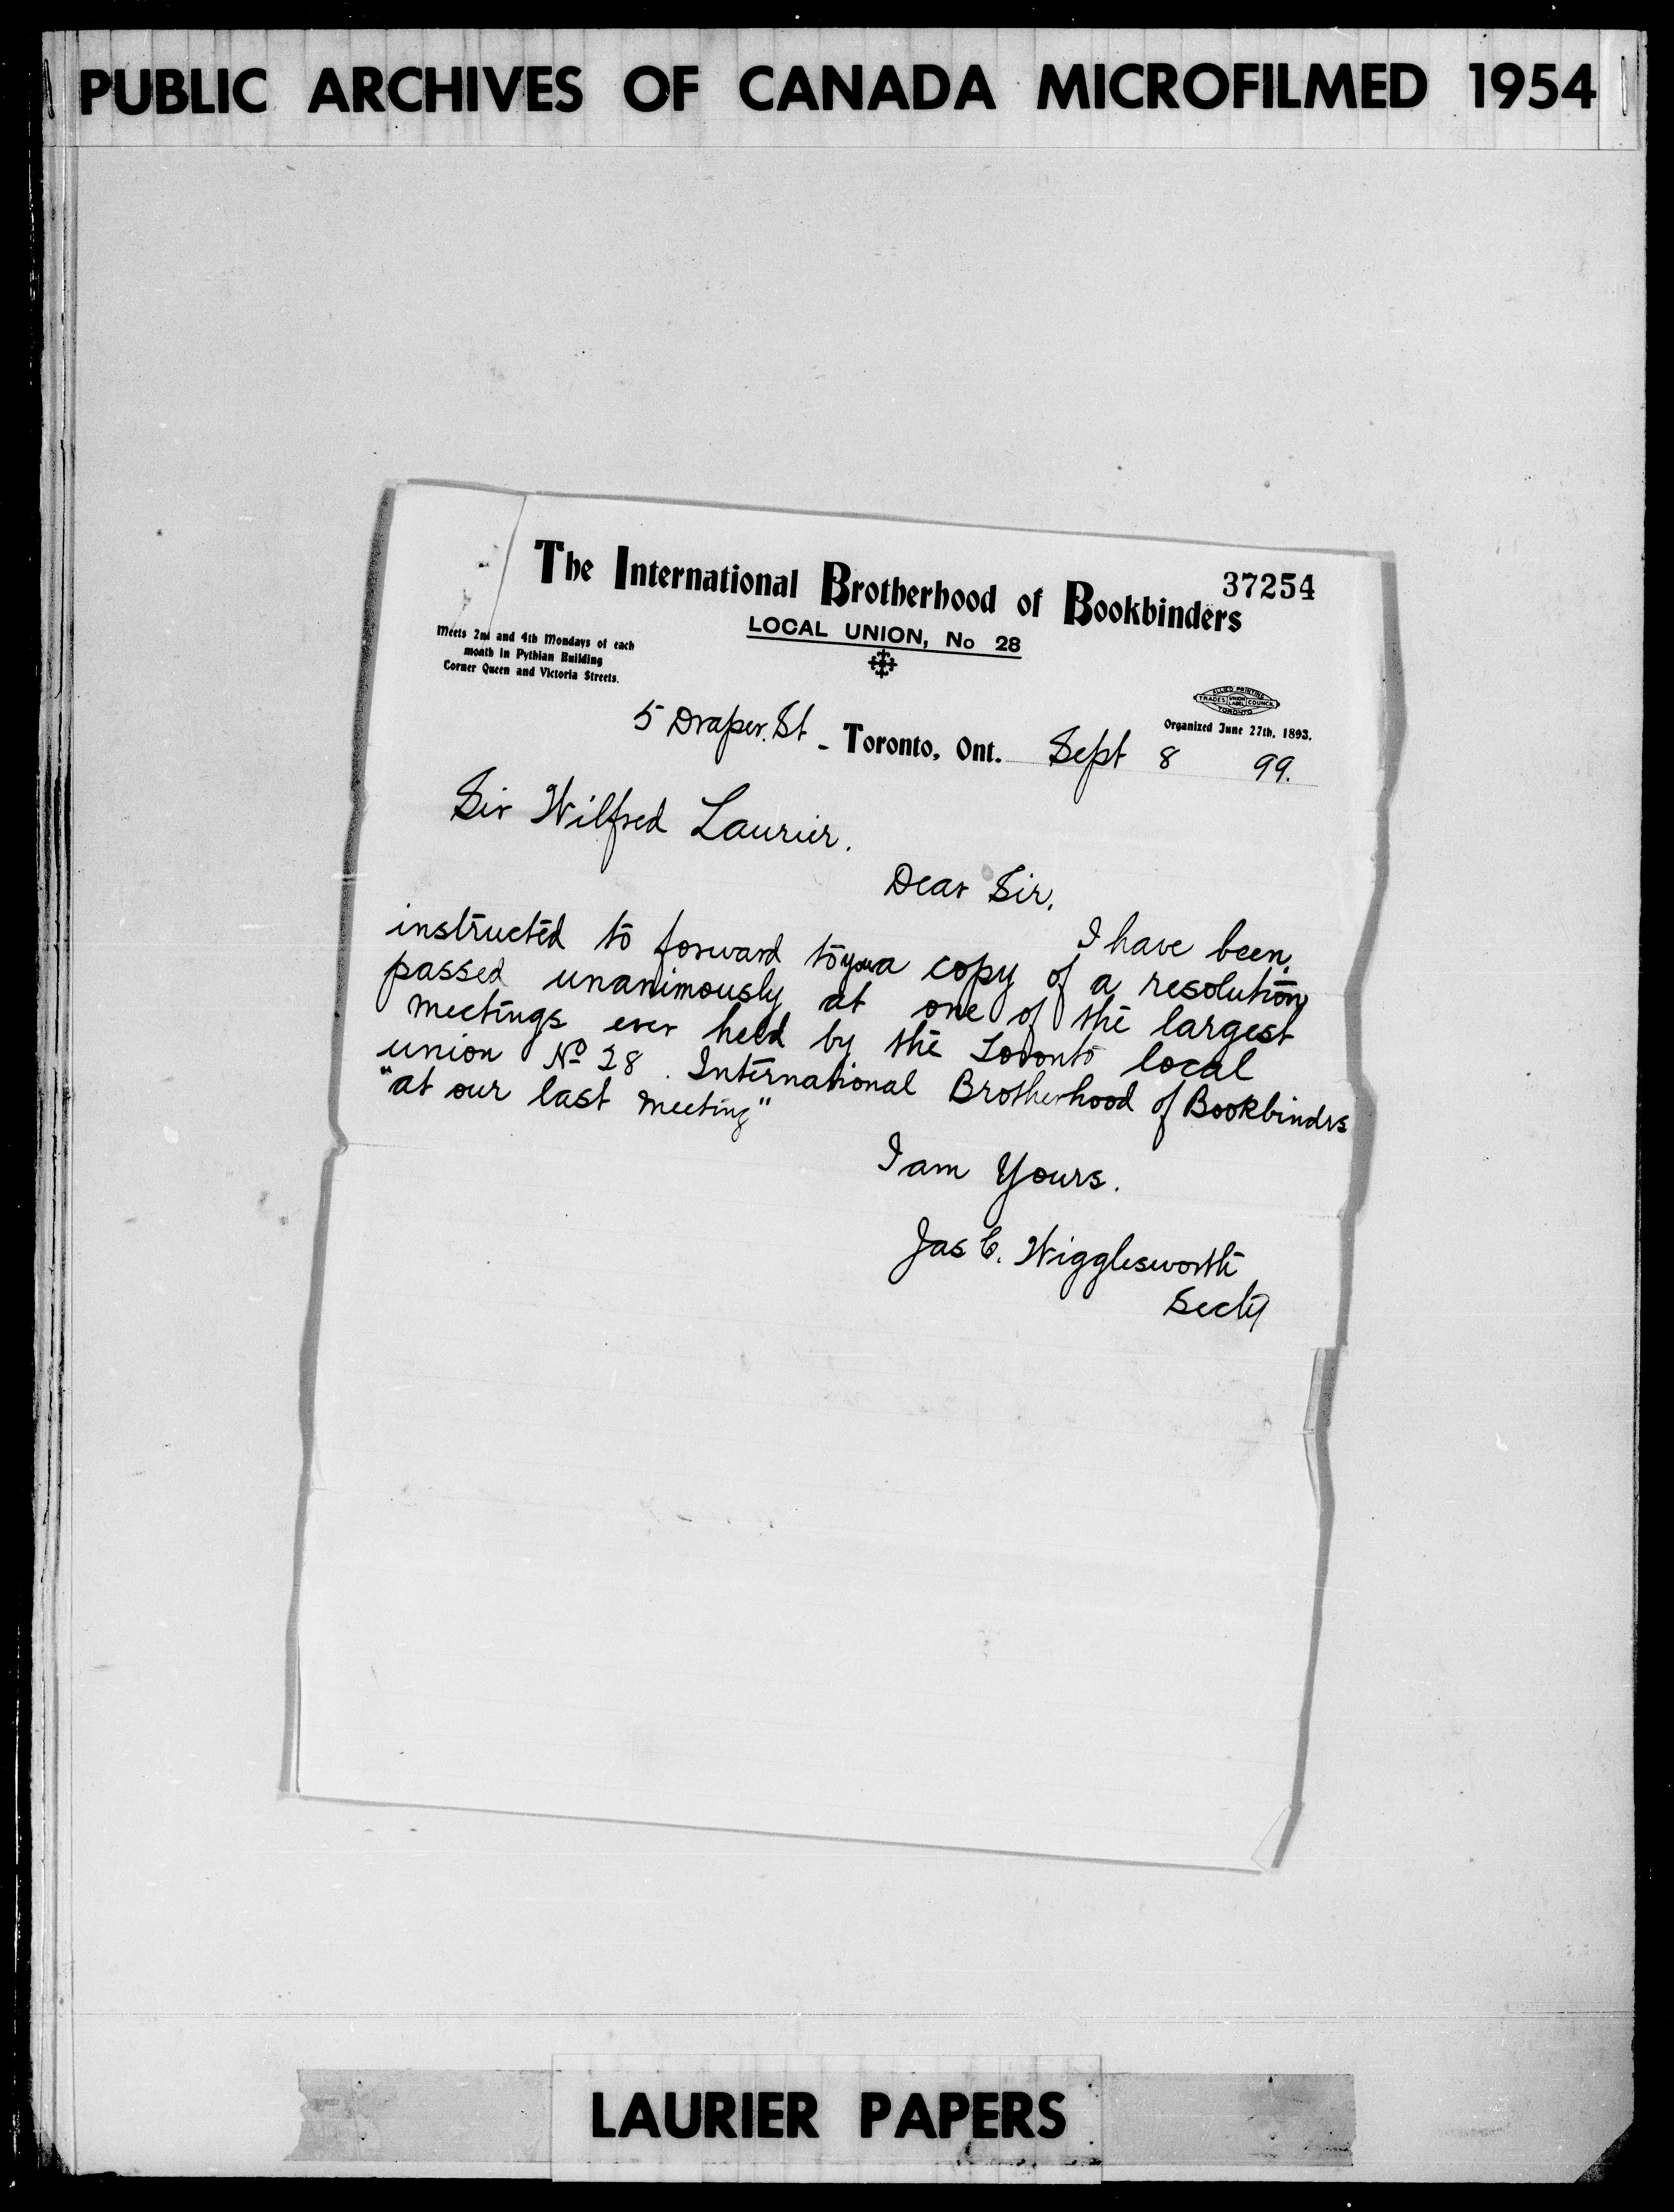 PUBLIC ARCHIVES OF CANADA MICROFILMED 1954
37254
The International Brotherhood of Bookbinders
LOCAL UNION, No 28
Meets 2nd and 4th Mondays of each
month in Pythian Building
Corner Queen and Victoria Streets.
ALLIED PRINTING
TRADES UNION LABEL COUNCIL
TORONTO
Organized June 27th, 1893.
5 Draper. St - Toronto, Ont. Sept 8 99.
Sir Wilfred Laurier.
Dear Sir.
I have been
instructed to forward to you a copy of a resolution
passed unanimously at one of the largest
meetings ever held by the Toronto local
union No 28. International Brotherhood of Bookbindrs
"at our last meeting"
I am Yours.
Jas C. Wigglesworth
Secty
LAURIER PAPERS